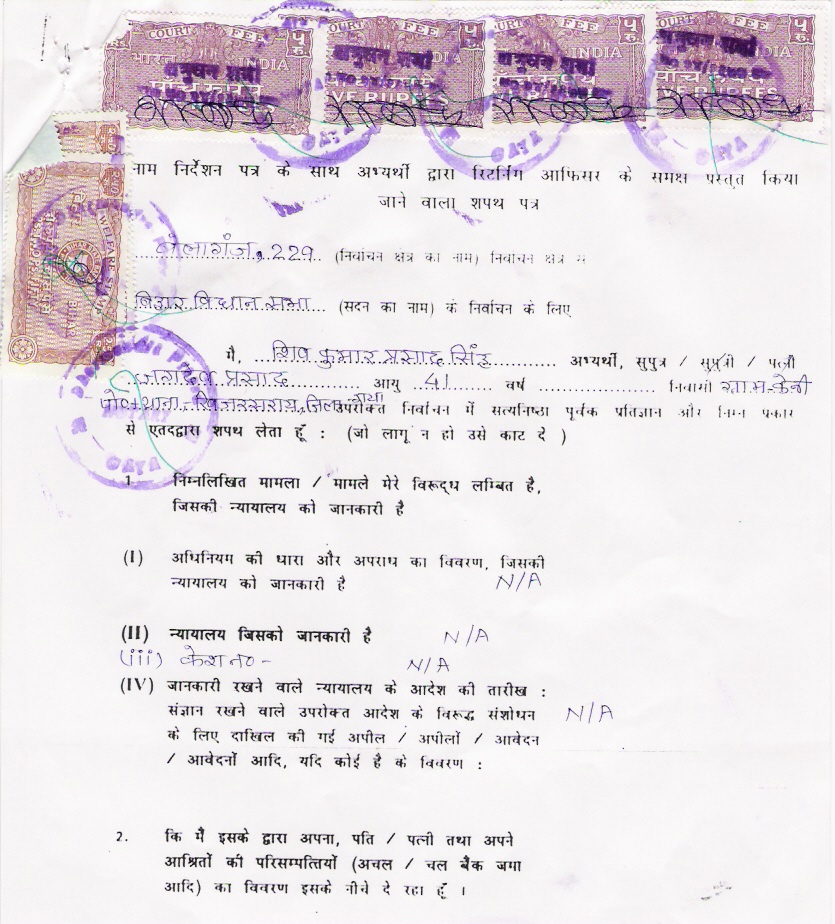 COURT FEE
COURT FEE
COURT FEE
COURT FEE
भारत INDIA
INDIA
INDIA
INDIA
पाँच रुपये
FIVE RUPEES
FIVE RUPEES
FIVE RUPEES
GAYA
WELFARE
BIHAR
नाम निर्देशन पत्र के साथ अभ्यर्थी द्वारा रिटर्निंग आफिसर के समक्ष प्रस्तुत किया
जाने वाला शपथ पत्र
बेलागंज, 229 (निर्वाचन क्षेत्र का नाम) निर्वाचन क्षेत्र से
बिहार विधान सभा (सदन का नाम) के निर्वाचन के लिए
मैं, शिव कुमार प्रसाद सिंह अभ्यर्थी, सुपुत्र / सुपुत्री / पत्नी
जगदेव प्रसाद आयु 41 वर्ष निवासी ग्राम-केनी
पो०+थाना-खिजरसराय, जिला-गया उपरोक्त निर्वाचन में सत्यनिष्ठा पूर्वक प्रतिज्ञान और निम्न प्रकार
से एतदद्वारा शपथ लेता हूँ : (जो लागू न हो उसे काट दे )
1. निम्नलिखित मामला / मामले मेरे विरूद्ध लम्बित है,
जिसकी न्यायालय को जानकारी है
(I) अधिनियम की धारा और अपराध का विवरण, जिसकी
न्यायालय को जानकारी है N/A
(II) न्यायालय जिसको जानकारी है N/A
(iii) केश न० - N/A
(IV) जानकारी रखने वाले न्यायालय के आदेश की तारीख :
संज्ञान रखने वाले उपरोक्त आदेश के विरूद्ध संशोधन N/A
के लिए दाखिल की गई अपील / अपीलों / आवेदन
/ आवेदनों आदि, यदि कोई है के विवरण :
2. कि मैं इसके द्वारा अपना, पति / पत्नी तथा अपने
आश्रितों की परिसम्पत्तियों (अचल / चल बैंक जमा
आदि) का विवरण इसके नीचे दे रहा हूँ ।